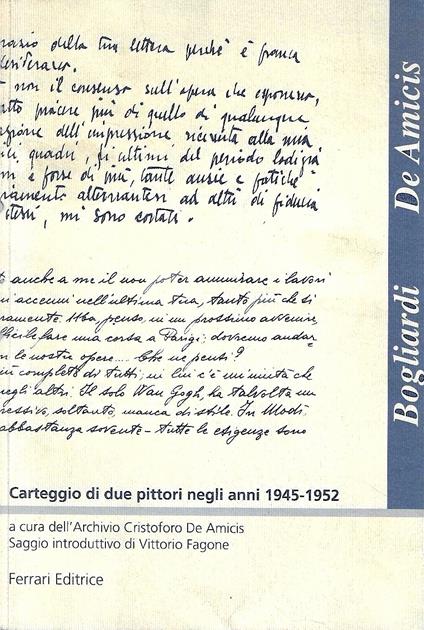 della tua lettera perchè è franca
desideravo.
non il consenso sull'opera che esponevo,
piacere più di quello di qualunque
dell'impressione ricevuta alla mia
quadri, gli ultimi del periodo
e forse di più, tante ansie e fatiche
alternantesi ad altri di fiducia
mi sono costati.
anche a me il non poter ammirare i lavori
accenni nell'ultima tua, tanto più che si
penso, in un prossimo avvenire,
fare una corsa a Parigi; dovremo andar
le nostre opere.... Che ne pensi?
completo di tutti; in lui c'è un'unità che
negli altri. Il solo Van Gogh, ha talvolta un
soltanto, manca di stile. In Modi.
abbastanza sovente - tutte le esigenze sono
Carteggio di due pittori negli anni 1945-1952
a cura dell'Archivio Cristoforo De Amicis
Saggio introduttivo di Vittorio Fagone
Ferrari Editrice
Bogliardi De Amicis